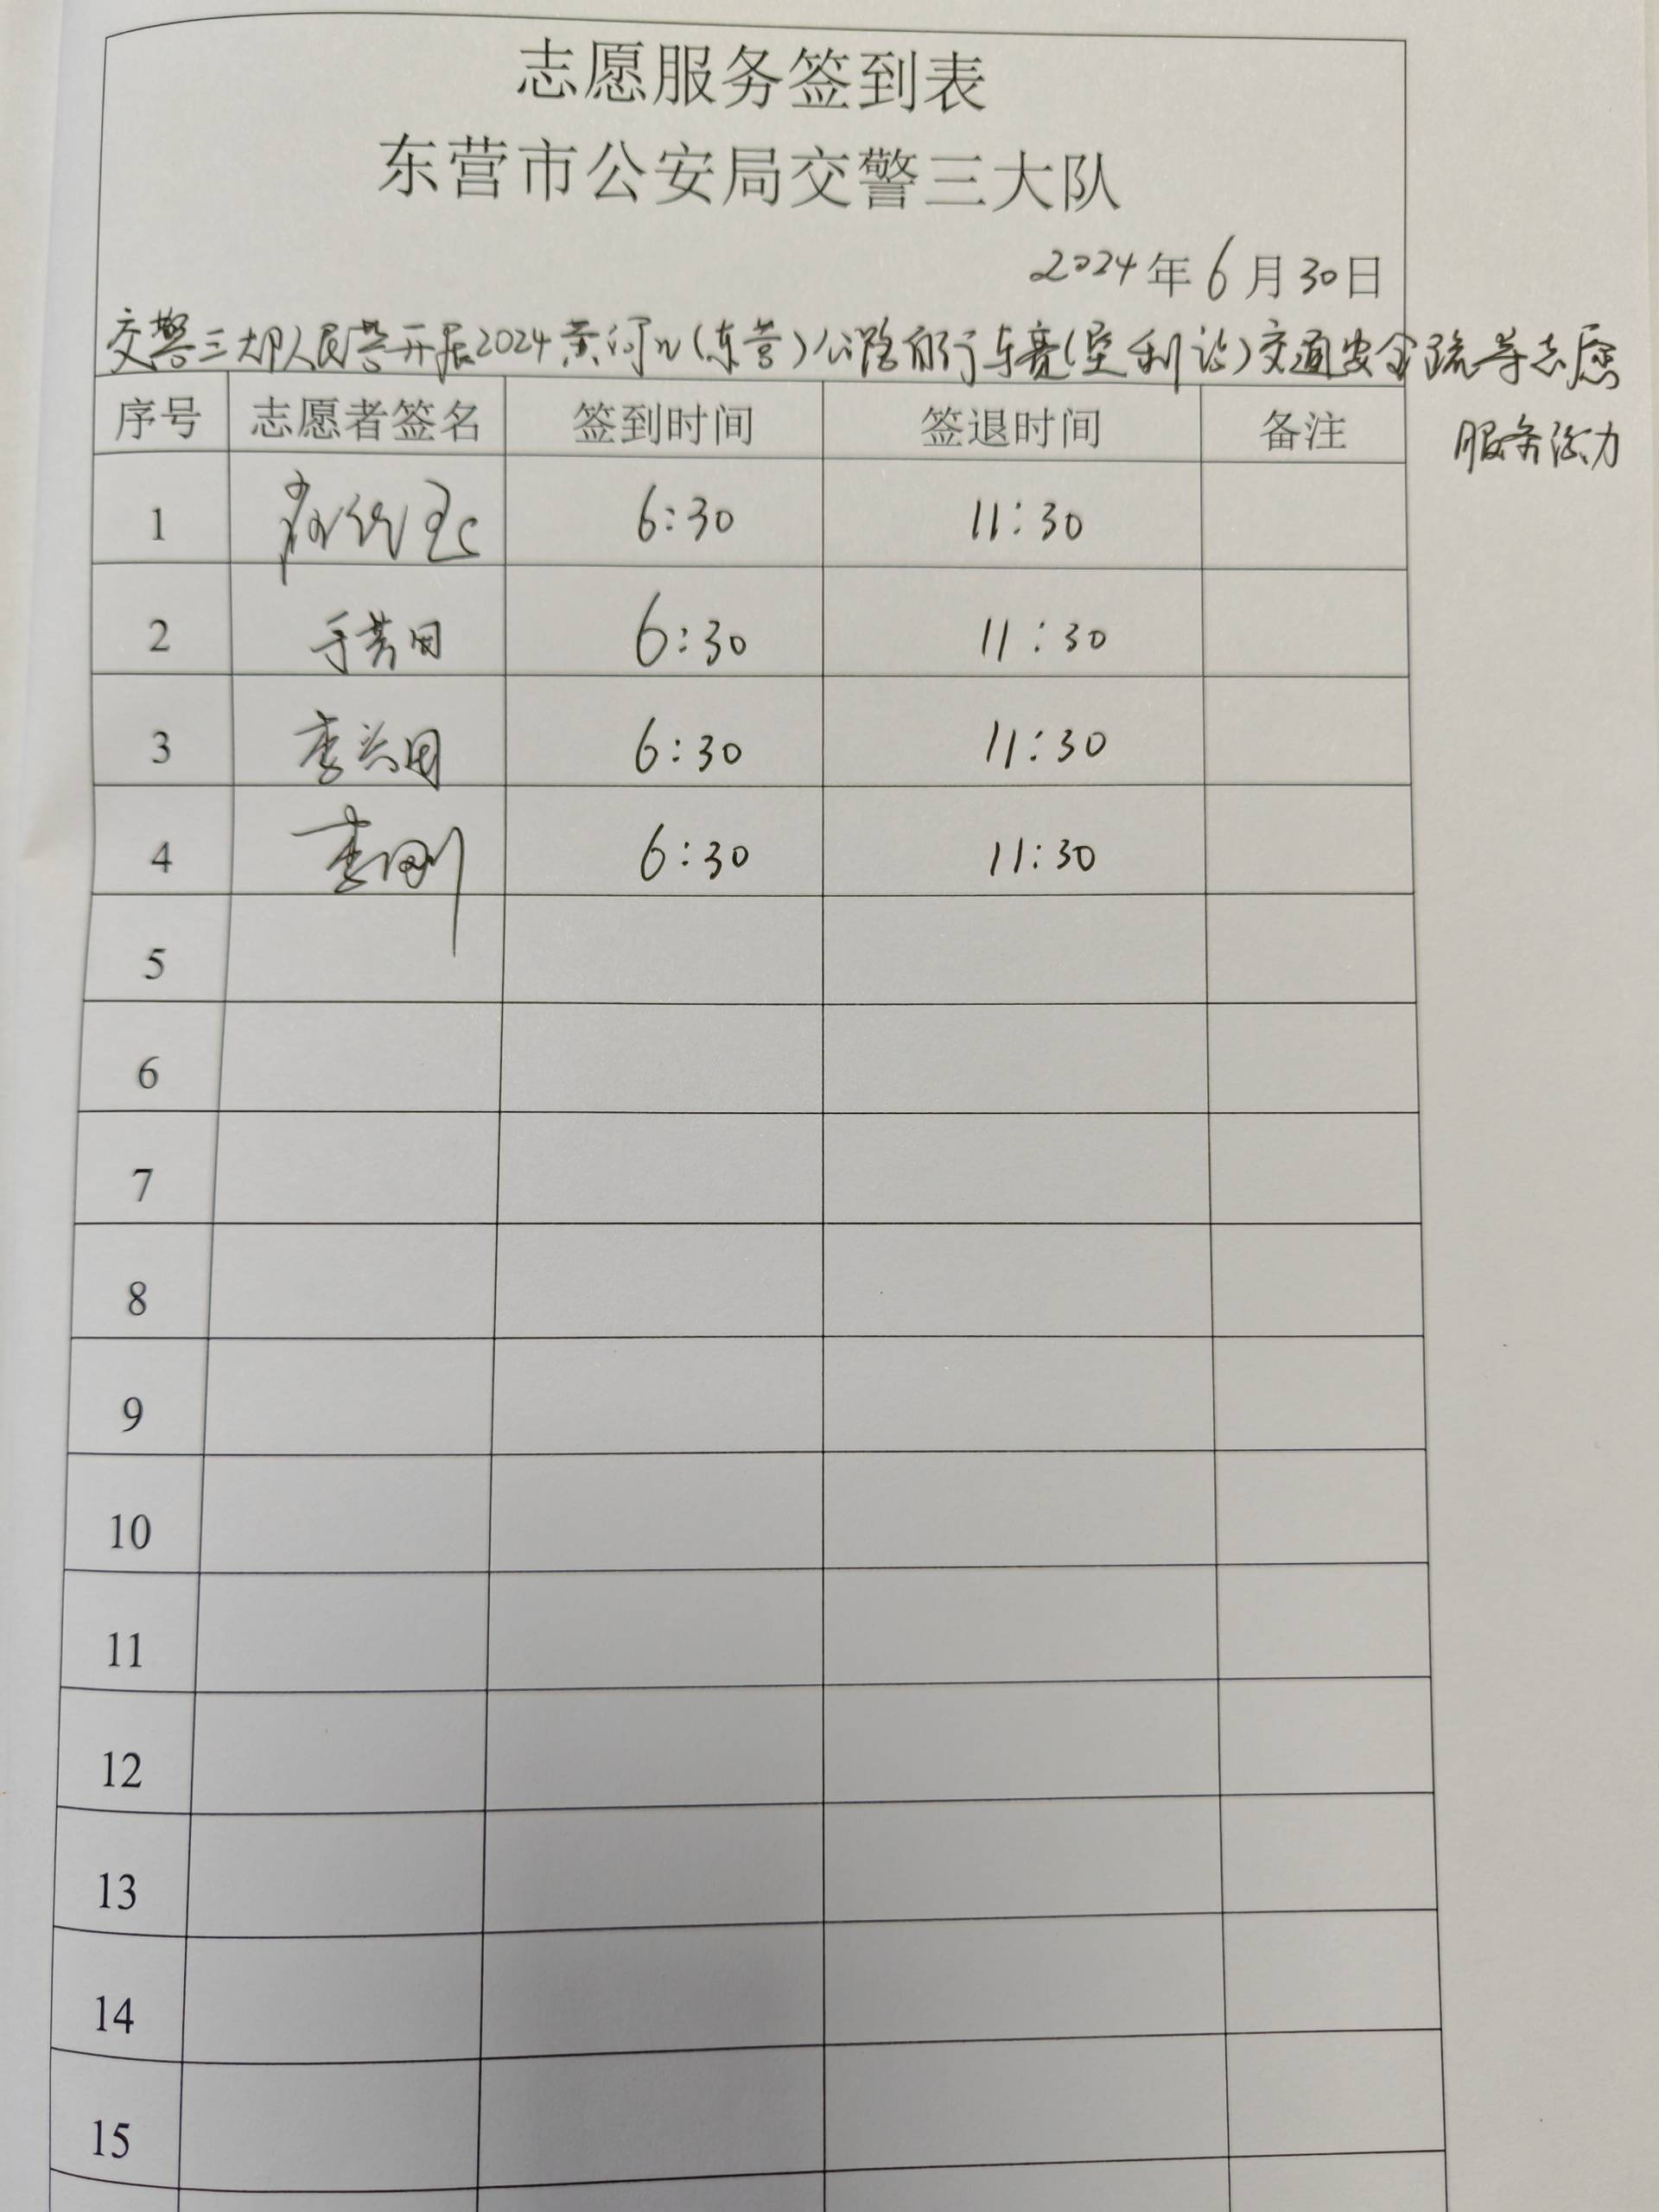 志愿服务签到表
东营市公安局交警三大队
2024年6月30日
交警三大队人民警开展2024黄河口(东营)公路自行车赛(垦利站)交通安全疏导志愿
服务活动
序号 志愿者签名 签到时间 签退时间 备注
1 6:30 11:30
2 6:30 11:30
3 李兴国 6:30 11:30
4 李刚 6:30 11:30
5
6
7
8
9
10
11
12
13
14
15